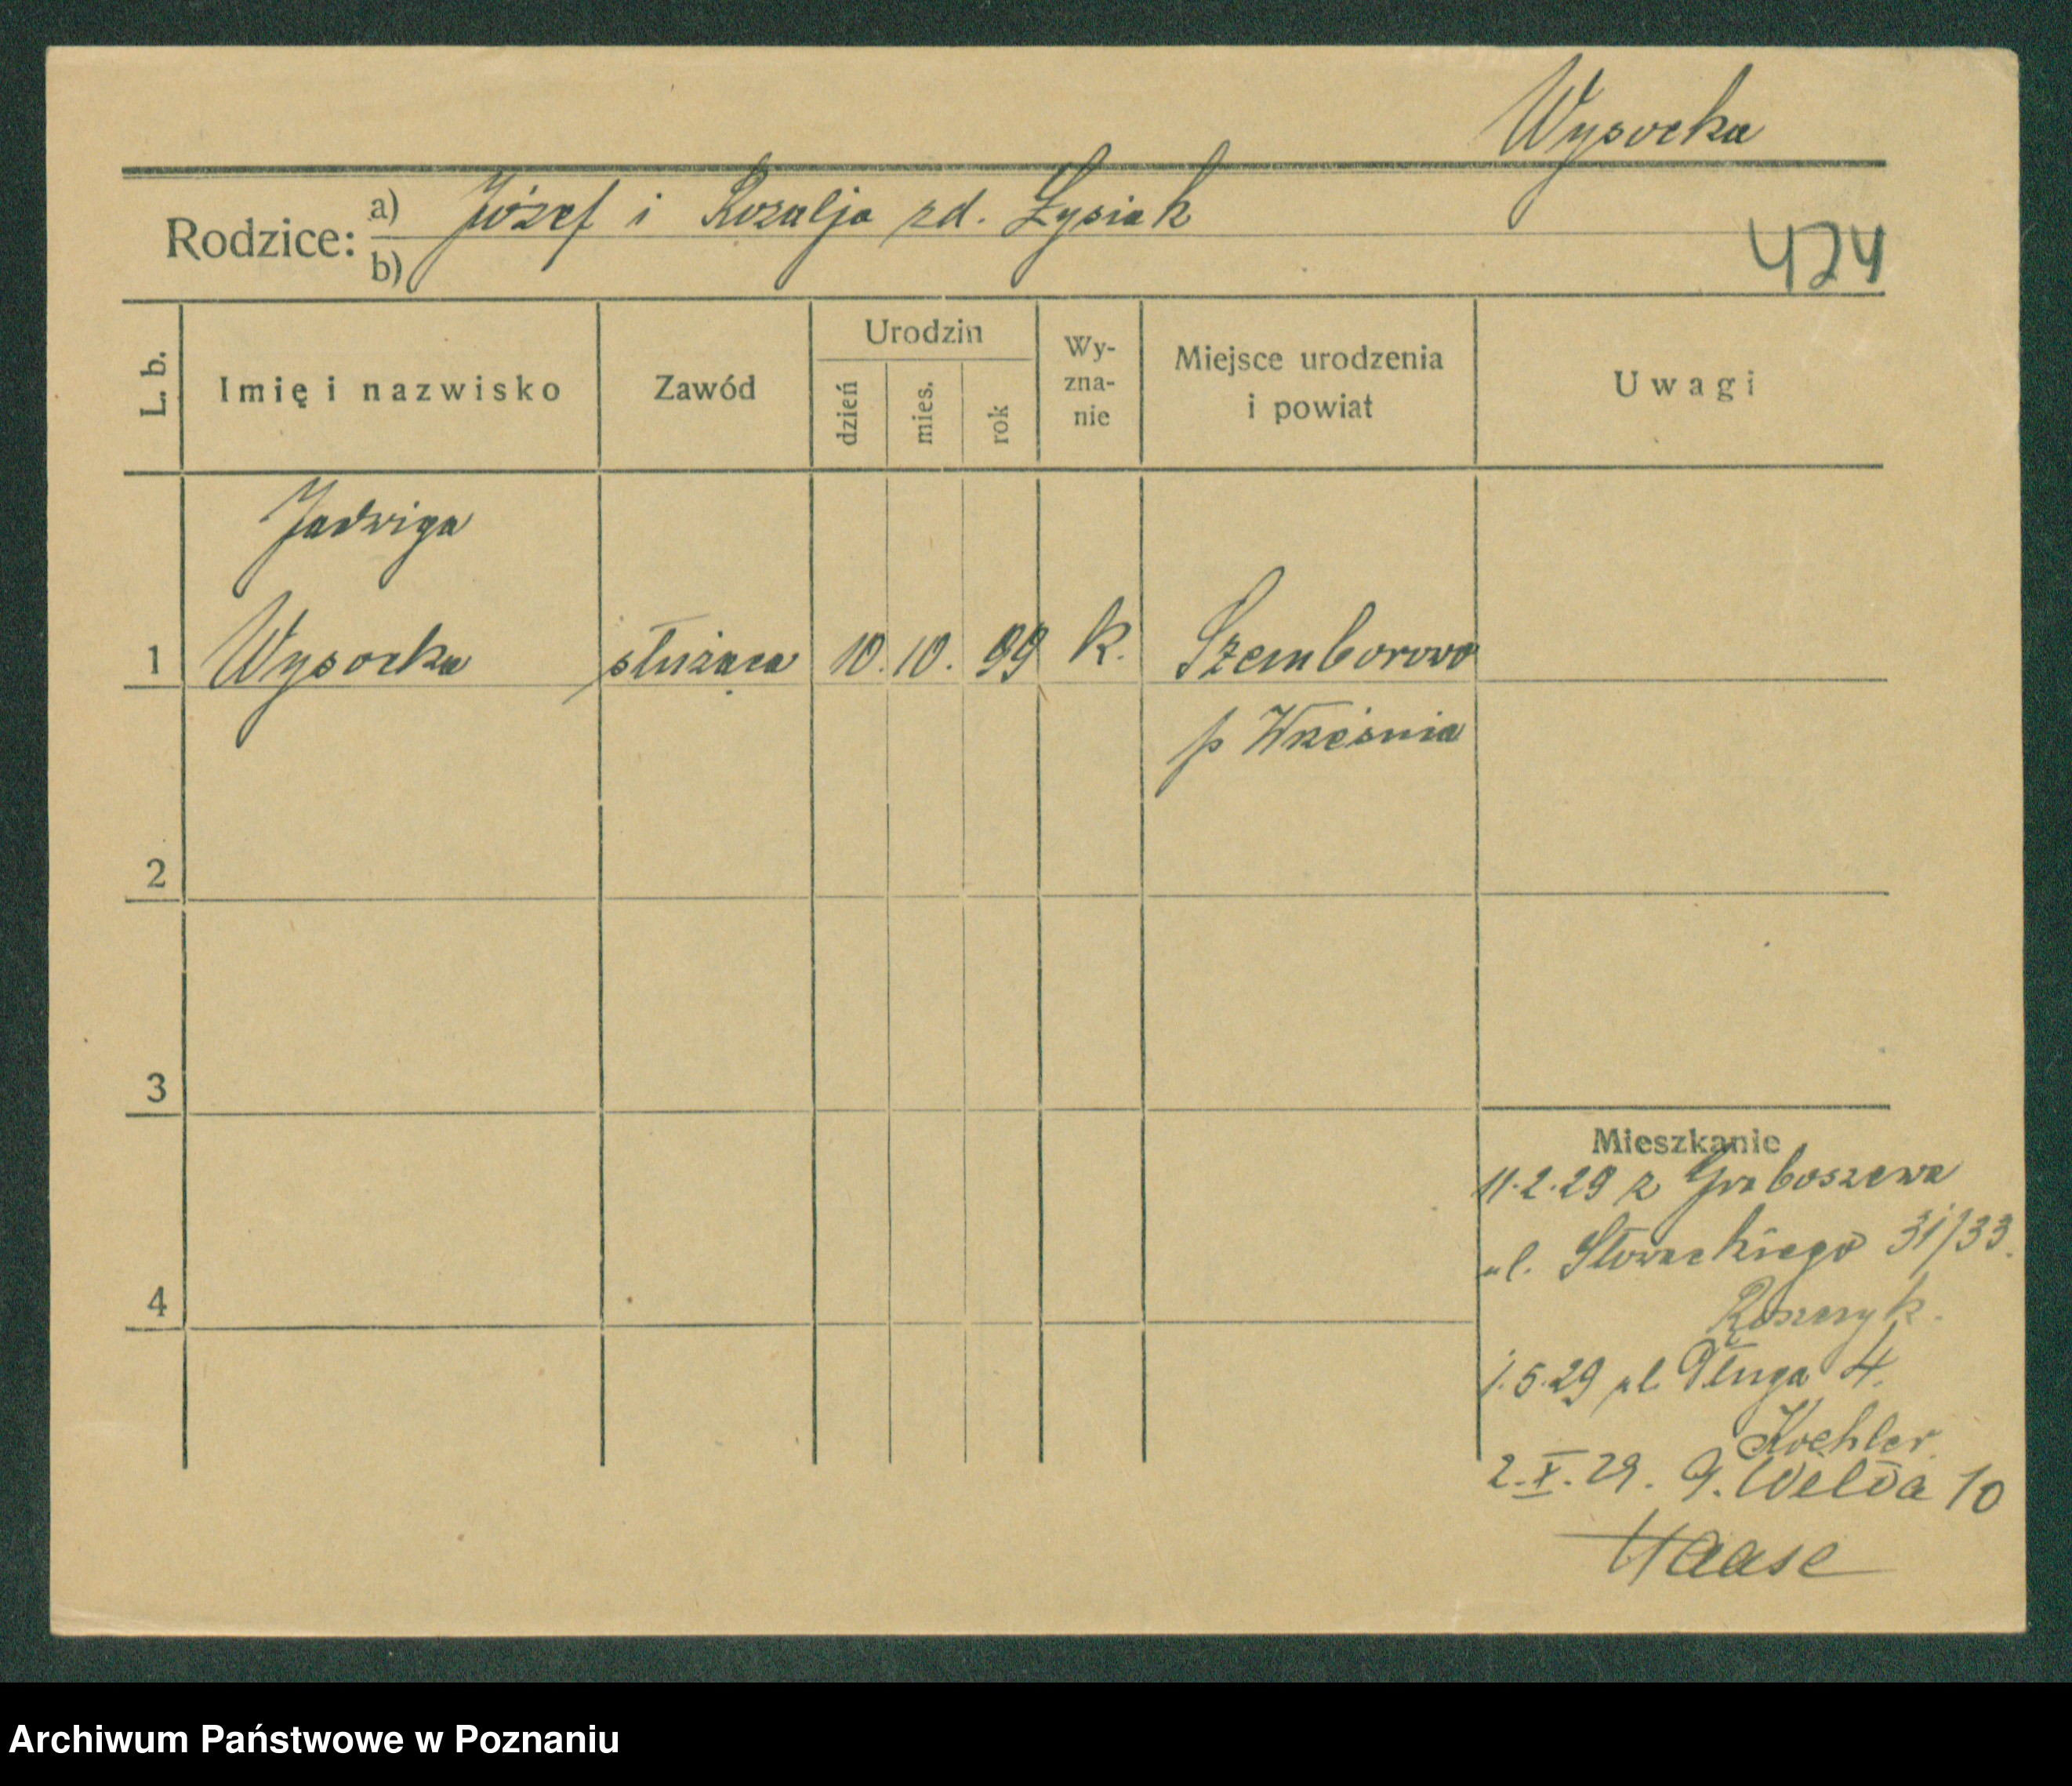 Wysocka
Rodzice: a) Józef i Rozalja zd. Łysiak
b)
424
L. b.
Imię i nazwisko
Zawód
Urodzin
dzień
mies.
rok
Wy-
zna-
nie
Miejsce urodzenia
i powiat
Uwagi
Jadwiga
1 Wysocka służąca 10. 10. 99 k. Szemborowo
p Września
2
3
4
Mieszkanie
11.2.29 z Graboszewa
ul. Słowackiego 31/33.
1.5.29 ul. Długa 4.
Koehler
2.X.29. G. Wilda 10
Haase
Archiwum Państwowe w Poznaniu